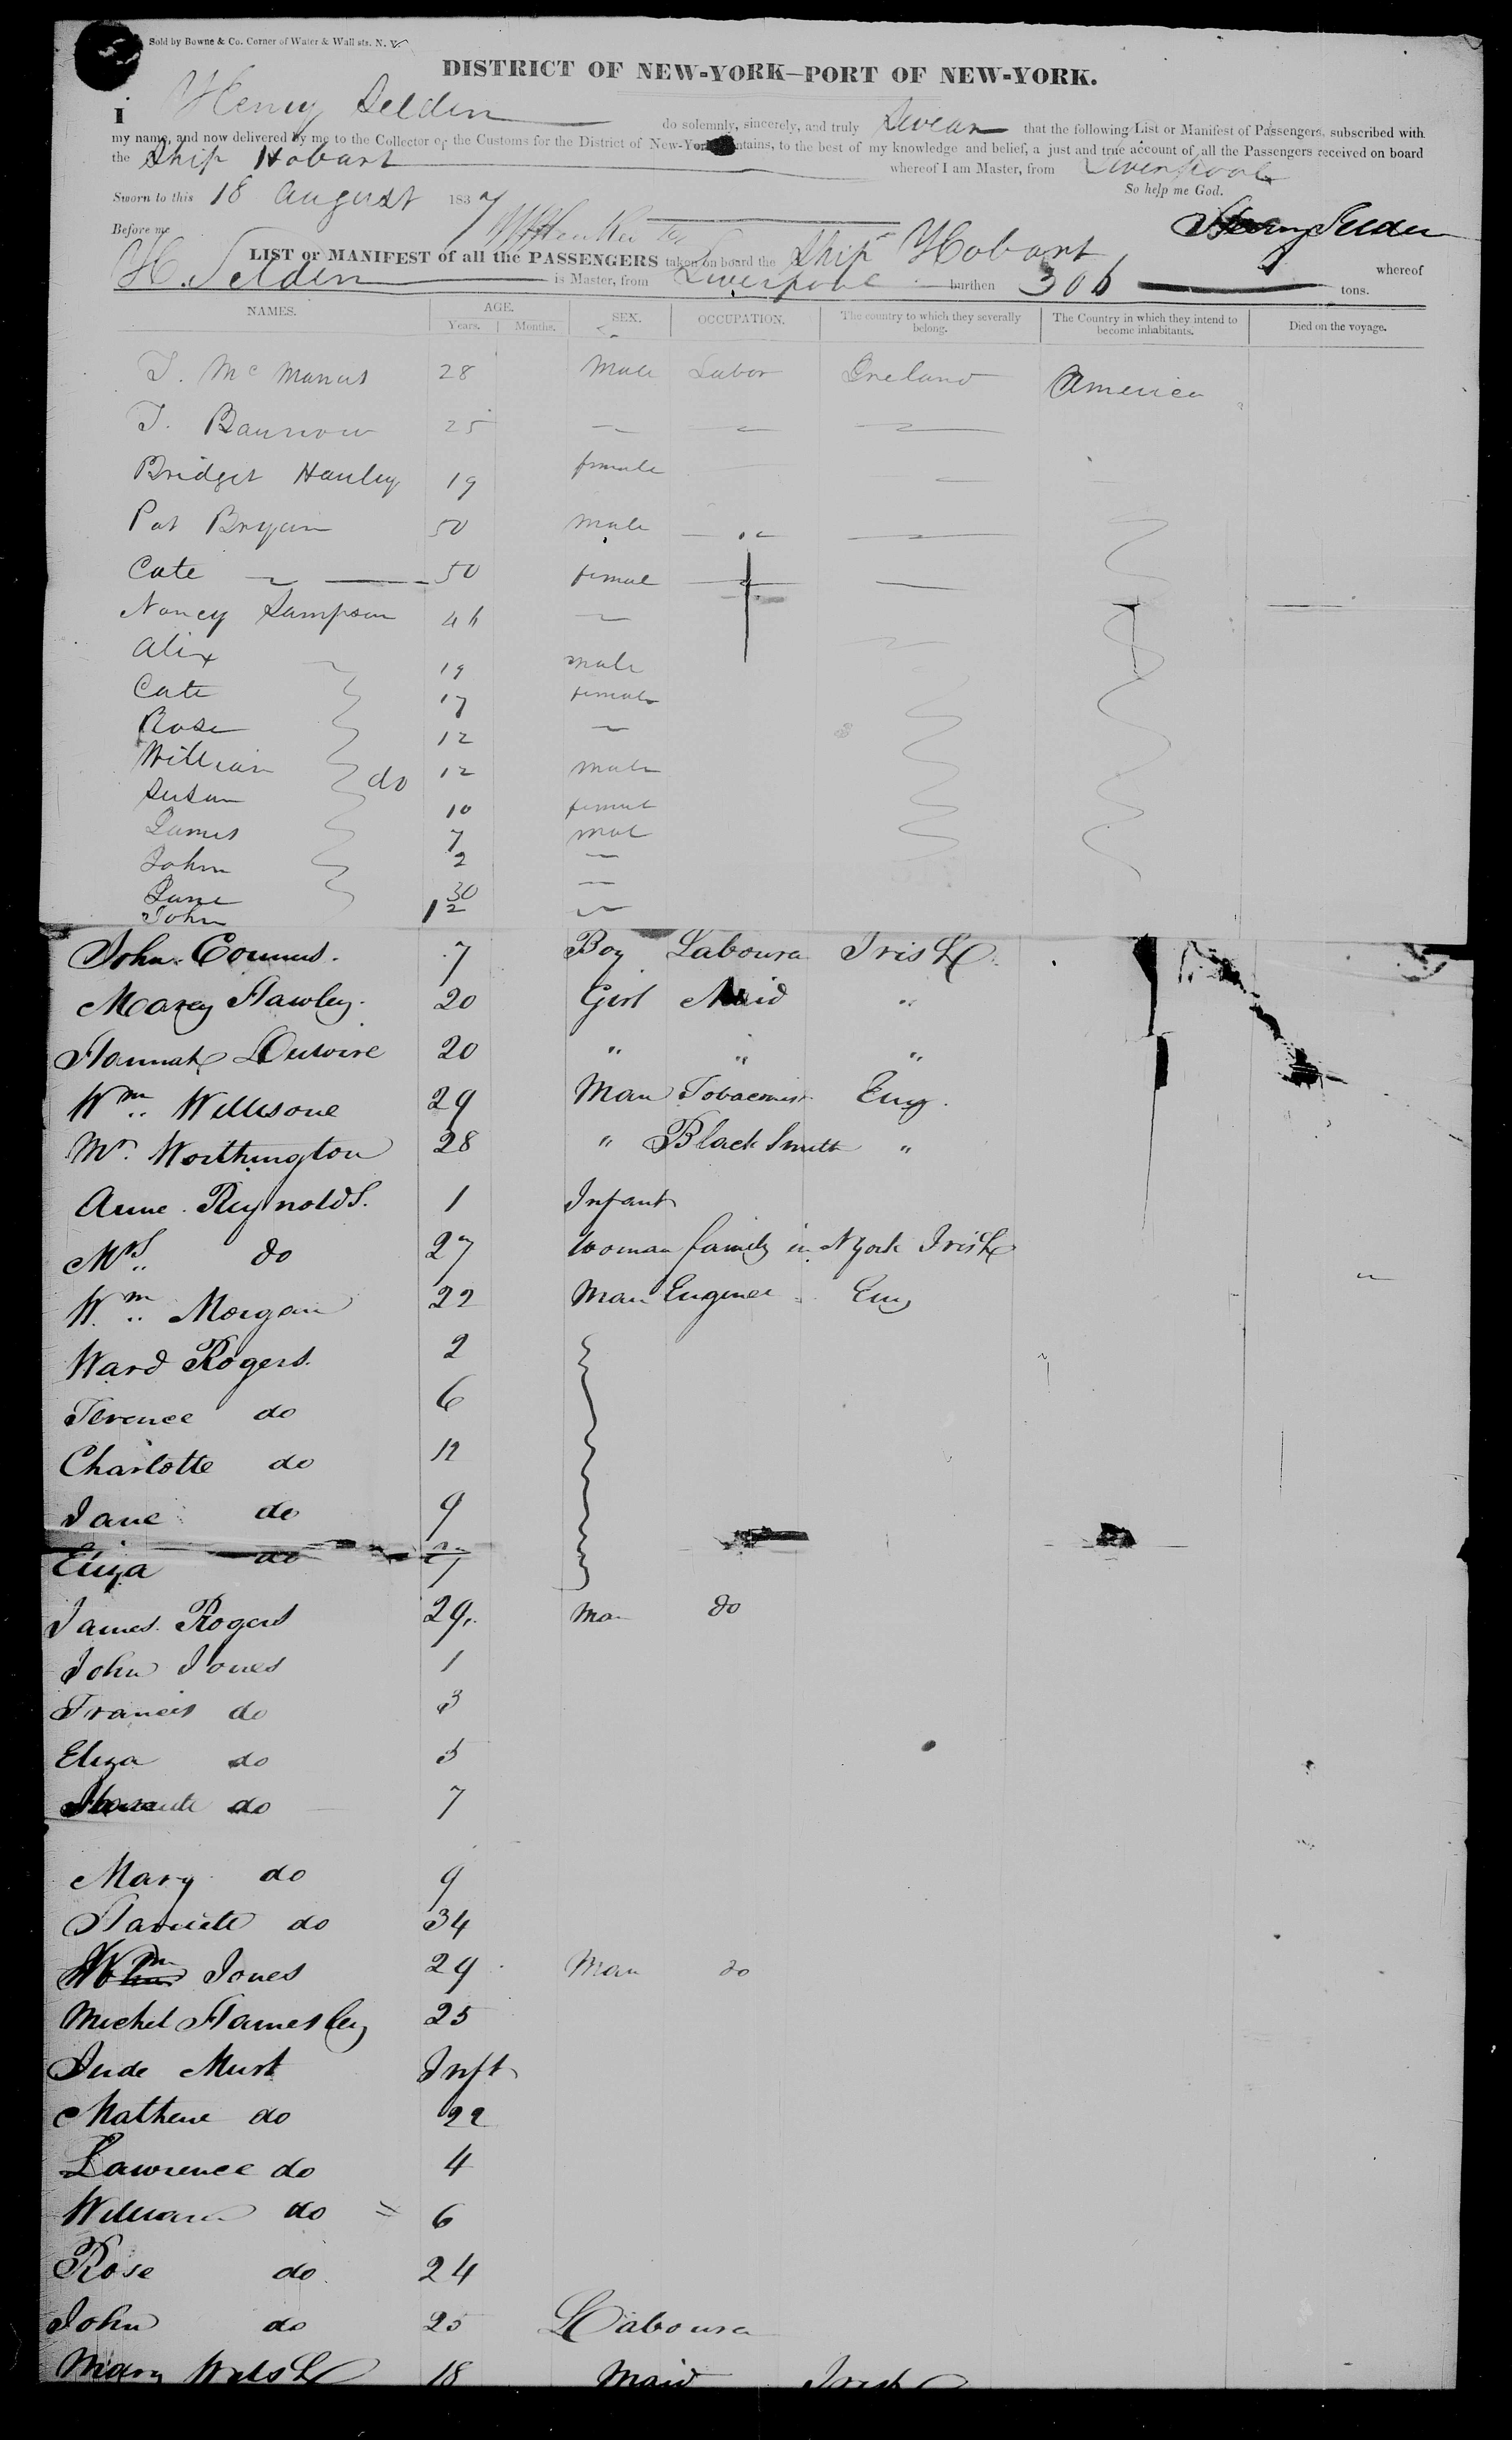 Sold by Bowne & Co. Corner of Water & Wall sts. N. Y.
DISTRICT OF NEW-YORK—PORT OF NEW-YORK.
I Henry Selden do solemnly, sincerely, and truly Swear that the following List or Manifest of Passengers, subscribed with
my name, and now delivered by me to the Collector of the Customs for the District of New-York contains, to the best of my knowledge and belief, a just and true account of all the Passengers received on board
the Ship Hobart whereof I am Master, from Liverpool
Sworn to this 18 August 1837 So help me God.
Before me Henry Selden
LIST or MANIFEST of all the PASSENGERS taken on board the Ship Hobart whereof
H. Selden is Master, from Liverpool burthen 306 tons.
NAMES. AGE. SEX. OCCUPATION. The country to which they severally belong. The Country in which they intend to become inhabitants. Died on the voyage.
Years. Months.
T. Mc Manus 28 Male Labor Ireland America
T. 25
Bridget Hanley 19 female
Pat Bryan 50 male
Cate 50 femal
Nancy Sampson 46
Alix 19 male
Cate 17 female
Rose 12
William do 12 male
Susan 10 femal
James 7 mal
John 2
Jane 30
John 1 2
John 7 Boy Laboura Irish
Marey Hawley. 20 Girl Maid "
Hannah 20 " " "
Wm. Willisone 29 Man Tobaconist Eng.
Mr. Worthington 28 " Black Smith "
Anne Reynolds. 1 Infant
Mrs. do 27 Woman family in N York Irish
Wm. Morgan 22 Man Enginee Eng
Ward Rogers. 2
Terence do 6
Charlotte do 12
Jane do 9
Eliza do
James Rogers 29. Man do
John Jones 1
Francis do 3
Eliza do 5
do 7
Mary do 9
Harriete do 34
Wm Jones 29 Man do
Michel Hamesley 25
Jude Murt Inft
Mathew do 22
Lawrence do 4
William do 6
Rose do 24
John do 25 Laboura
Mary Welsh 18 Maid Irish